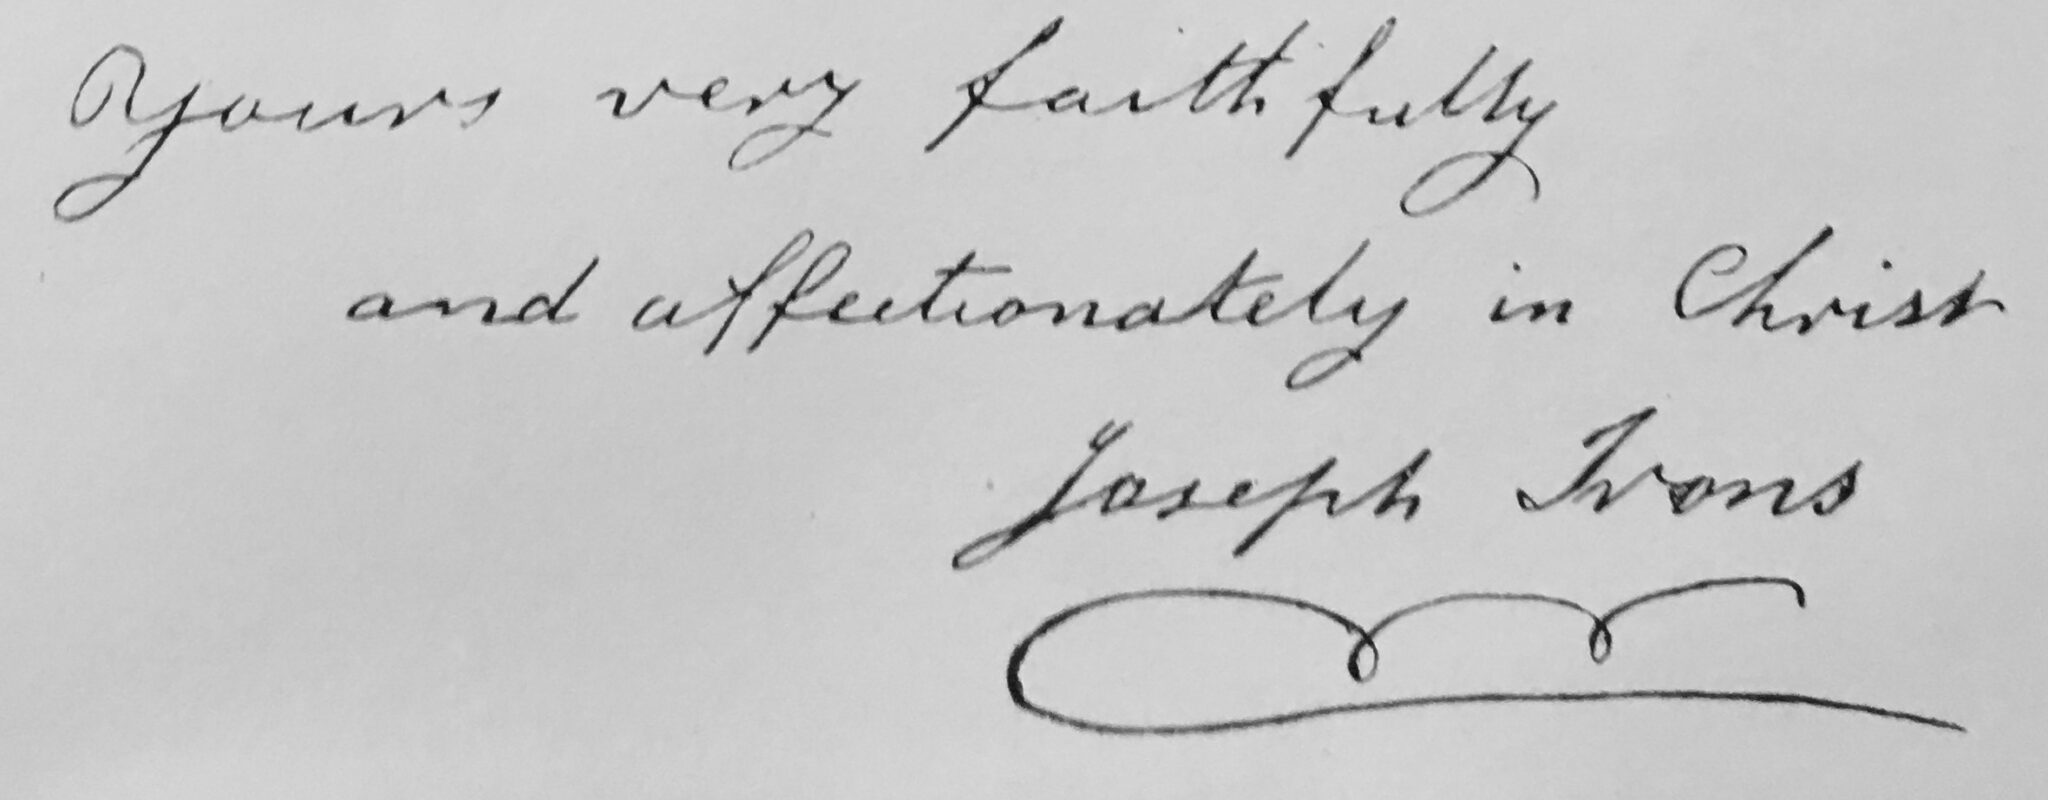 Yours very faithfully
and affectionately in Christ
Joseph Irons